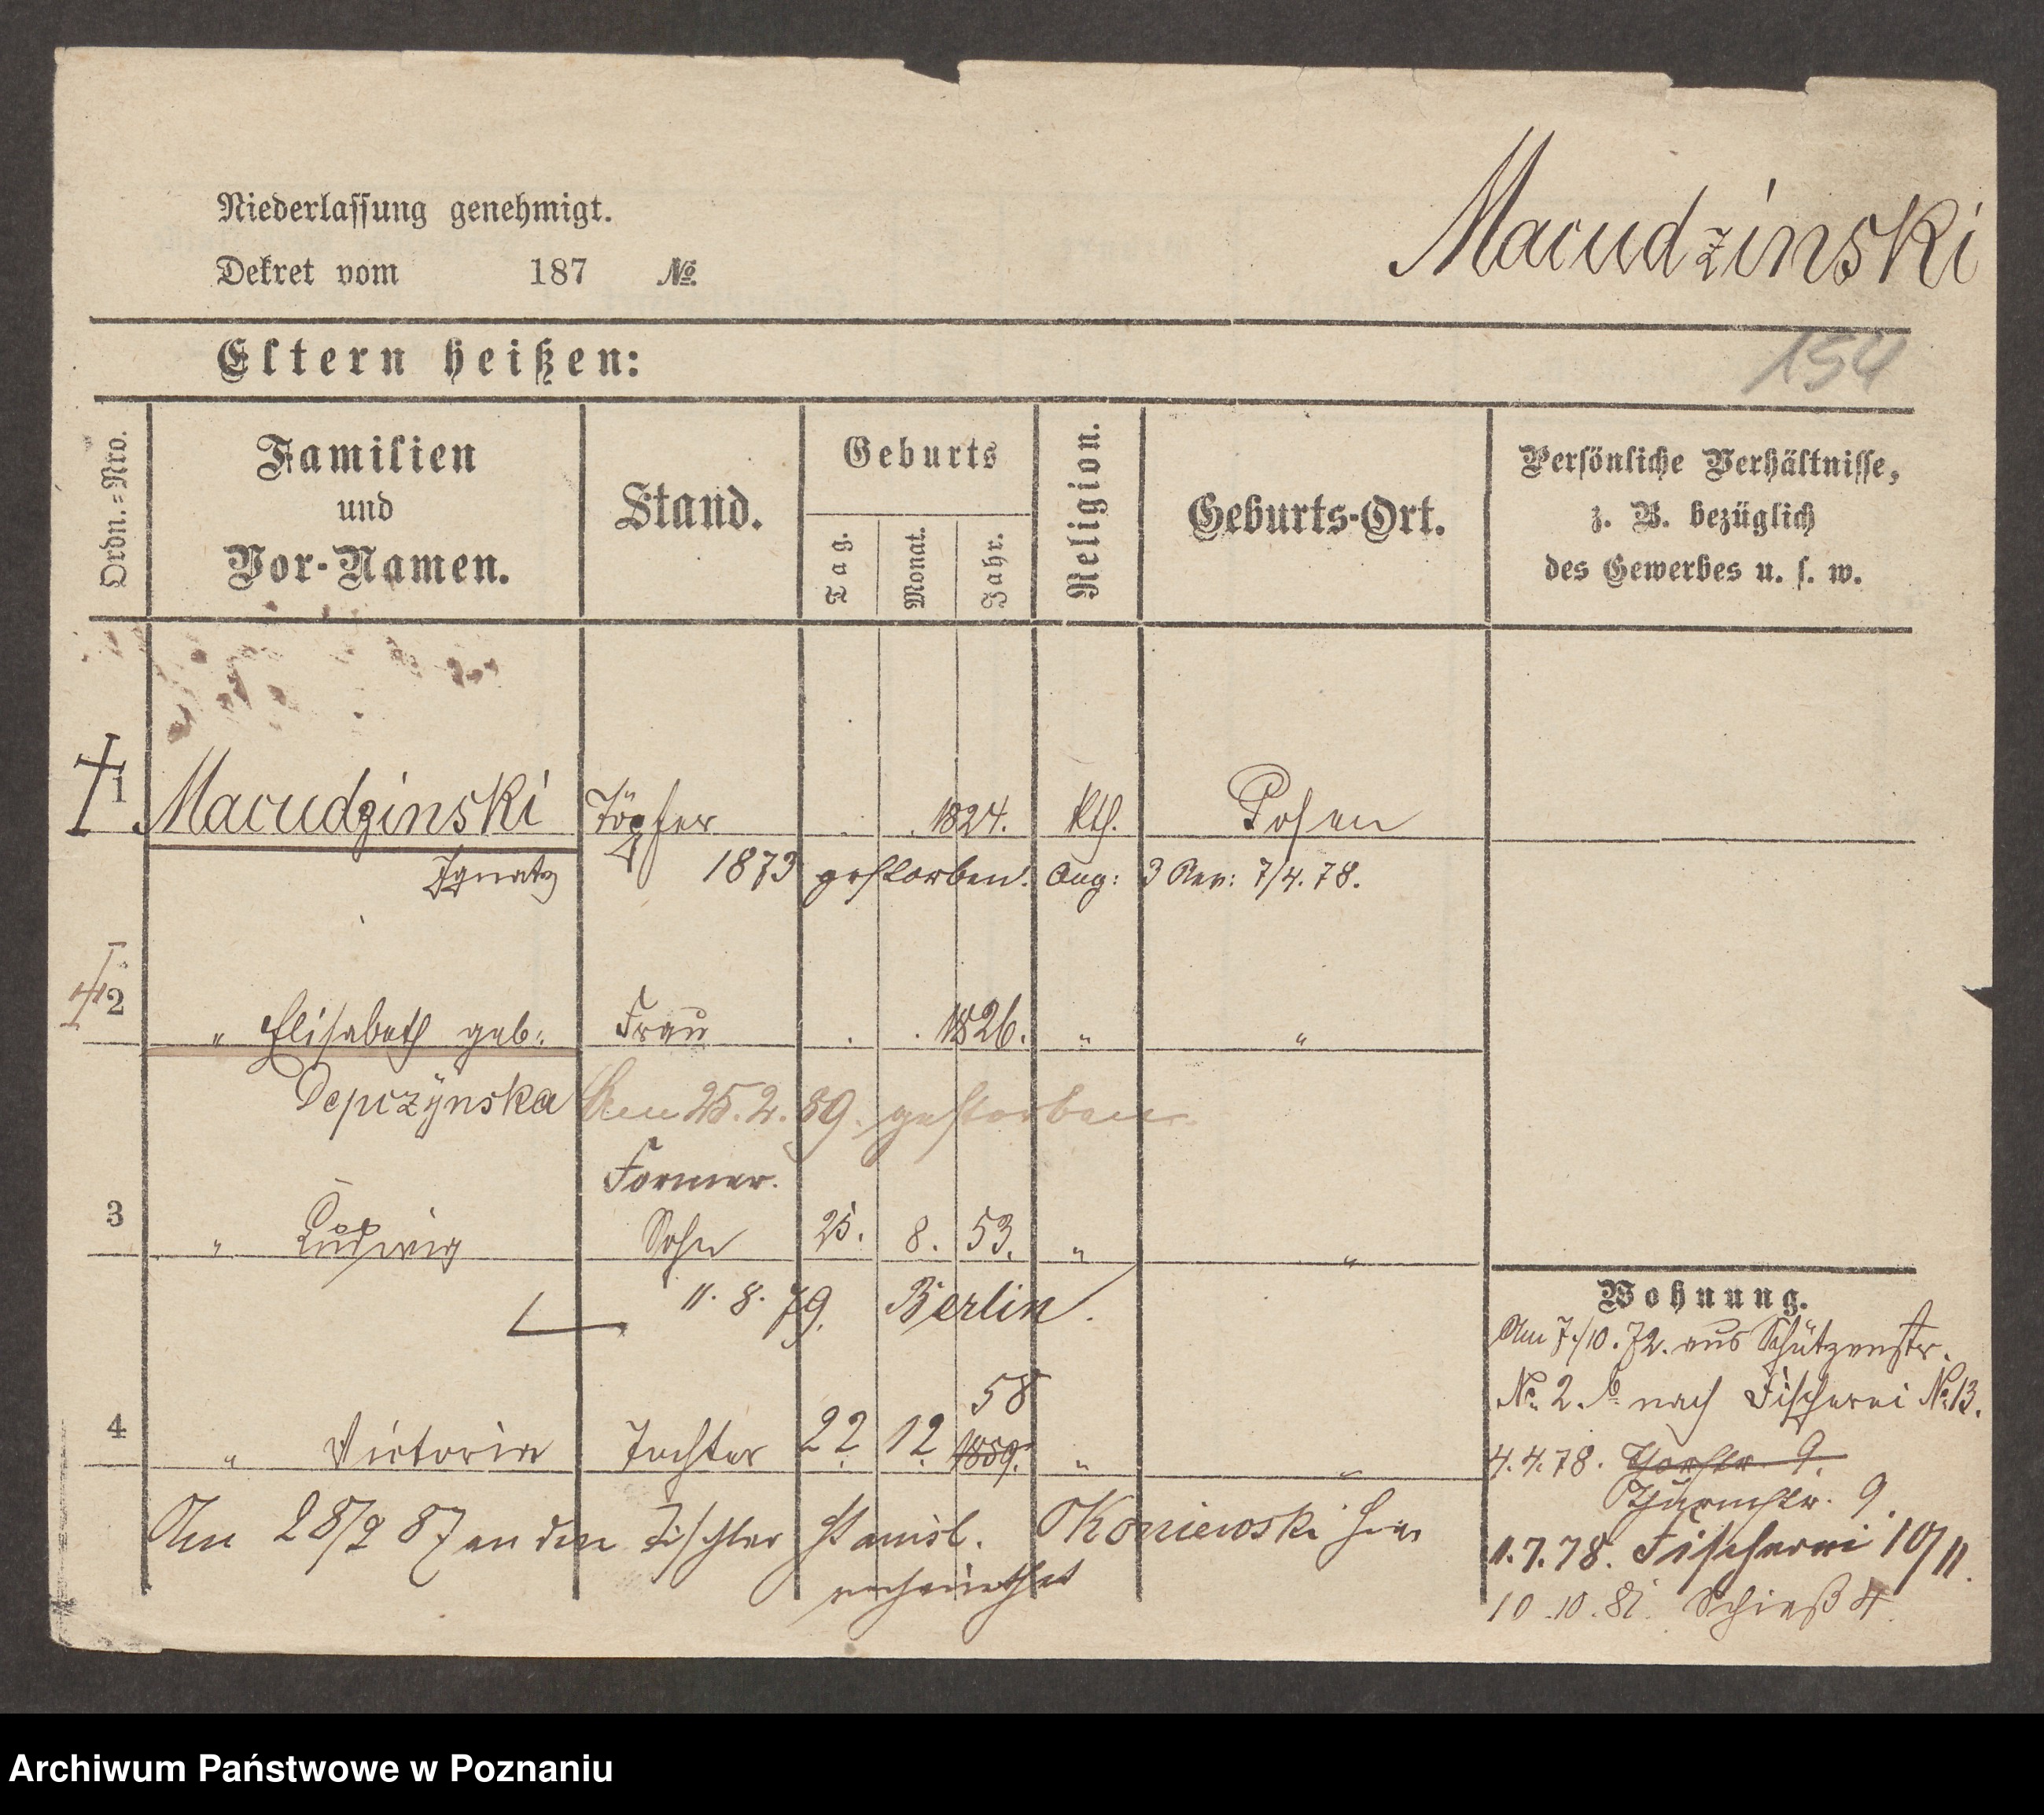 Niederlassung genehmigt.
Dekret vom 187 №
Macudzinski
Eltern heißen:
154
Ordn.=Nro.
Familien
und
Vor-Namen.
Stand.
Geburts
Tag.
Monat.
Jahr.
Religion.
Geburts-Ort.
Persönliche Verhältnisse,
z. B. bezüglich
des Gewerbes u. s. w.
1 Macudzinski Töpfer 1824. kth. Posen
Ignatz 1873 gestorben. Ang: 3 Rev: 7/4. 78.
2 " Elisabeth geb: Frau 1826. " "
Depczÿnska Am 25. 2. 89. gestorben
Former.
3 " Ludwig Sohn 25. 8. 53. " "
11. 8. 79. Berlin.
Wohnung.
Am 7./10. 72. aus Schützenstr.
№ 2.b nach Fischerei № 13.
58
4 " Victoria Tochter 22. 12. 1859. " "
4. 4. 78. Thorstr. 9.
Thurmstr. 9.
Am 28/2 87 an den Tischler Stanisl. Koniewski hier
verheirathet
1. 7. 78. Fischerei 10/11.
10. 10. 81. Schieß 4.
Archiwum Państwowe w Poznaniu